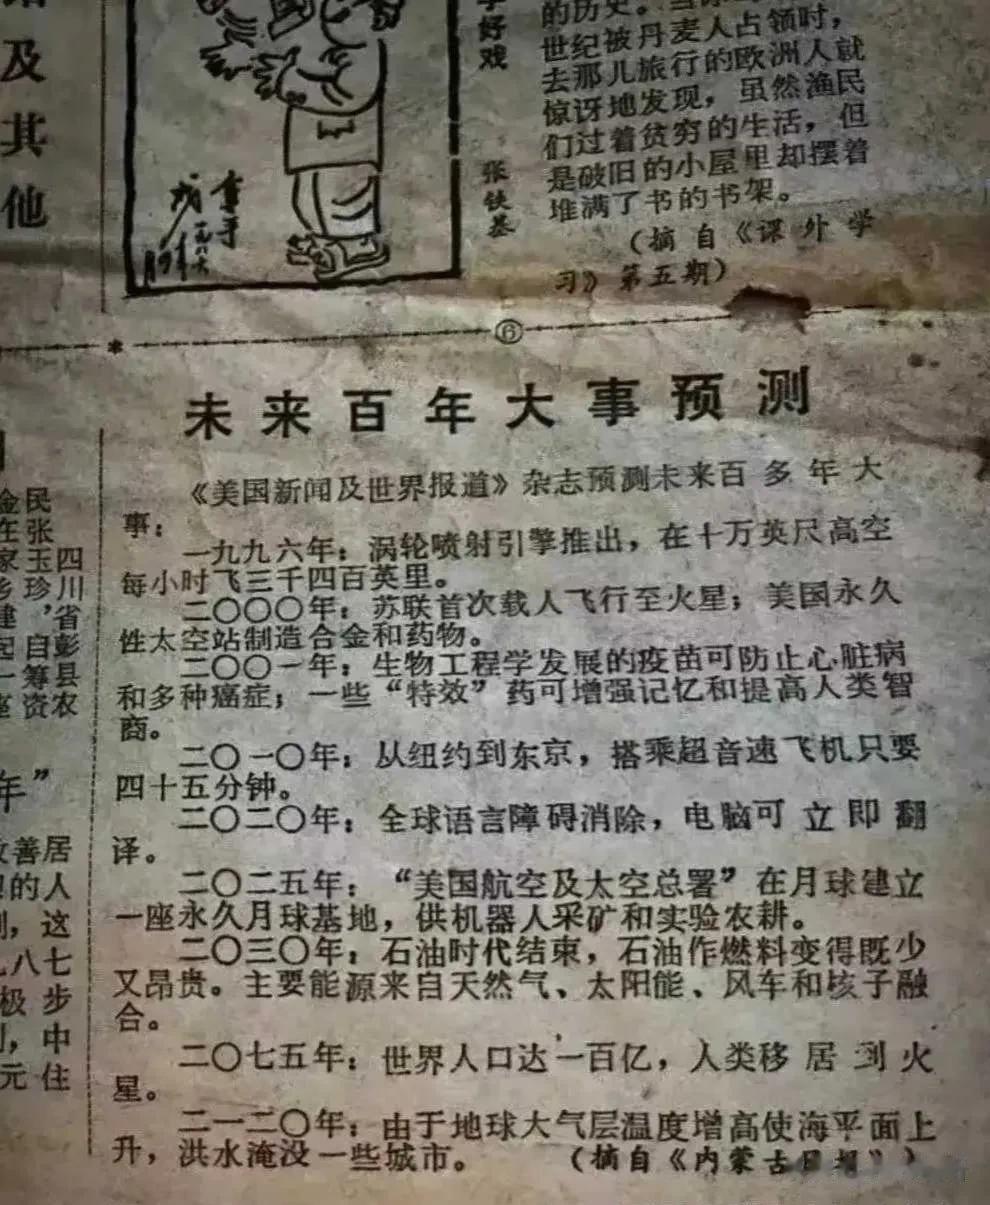 及其他
学好戏
张铁基
的历史。当
世纪被丹麦人占领时，
去那儿旅行的欧洲人就
惊讶地发现，虽然渔民
们过着贫穷的生活，但
是破旧的小屋里却摆着
堆满了书的书架。
（摘自《课外学
习》第五期）
⑥
未来百年大事预测
《美国新闻及世界报道》杂志预测未来百多年大
事：
一九九六年：涡轮喷射引擎推出，在十万英尺高空
每小时飞三千四百英里。
二〇〇〇年：苏联首次载人飞行至火星；美国永久
性太空站制造合金和药物。
二〇〇一年：生物工程学发展的疫苗可防止心脏病
和多种癌症；一些“特效”药可增强记忆和提高人类智
商。
二〇一〇年：从纽约到东京，搭乘超音速飞机只要
四十五分钟。
二〇二〇年：全球语言障碍消除，电脑可立即翻
译。
二〇二五年：“美国航空及太空总署”在月球建立
一座永久月球基地，供机器人采矿和实验农耕。
二〇三〇年：石油时代结束，石油作燃料变得既少
又昂贵。主要能源来自天然气、太阳能、风车和核子融
合。
二〇七五年：世界人口达一百亿，人类移居到火
星。
二一二〇年：由于地球大气层温度增高使海平面上
升，洪水淹没一些城市。（摘自《内蒙古日报》）
四川省彭县农
民张玉珍自筹资
金在家乡建起一座
年”
改善居
的人
，这
八七
极步
，中
元住